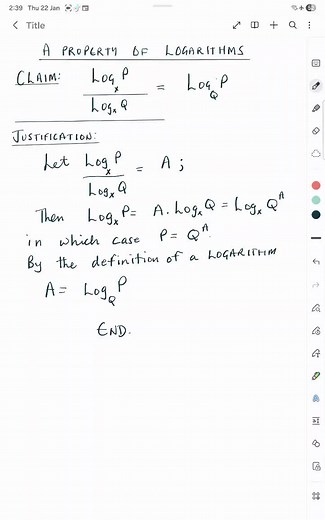 2:39 Thu 22 Jan
Title
A PROPERTY OF LOGARITHMS
CLAIM: Log_x P / Log_x Q = Log_Q P
JUSTIFICATION:
Let Log_x P / Log_x Q = A ;
Then Log_x P = A. Log_x Q = Log_x Q^A
in which case P = Q^A.
By the definition of a LOGARITHM
A = Log_Q P
END.